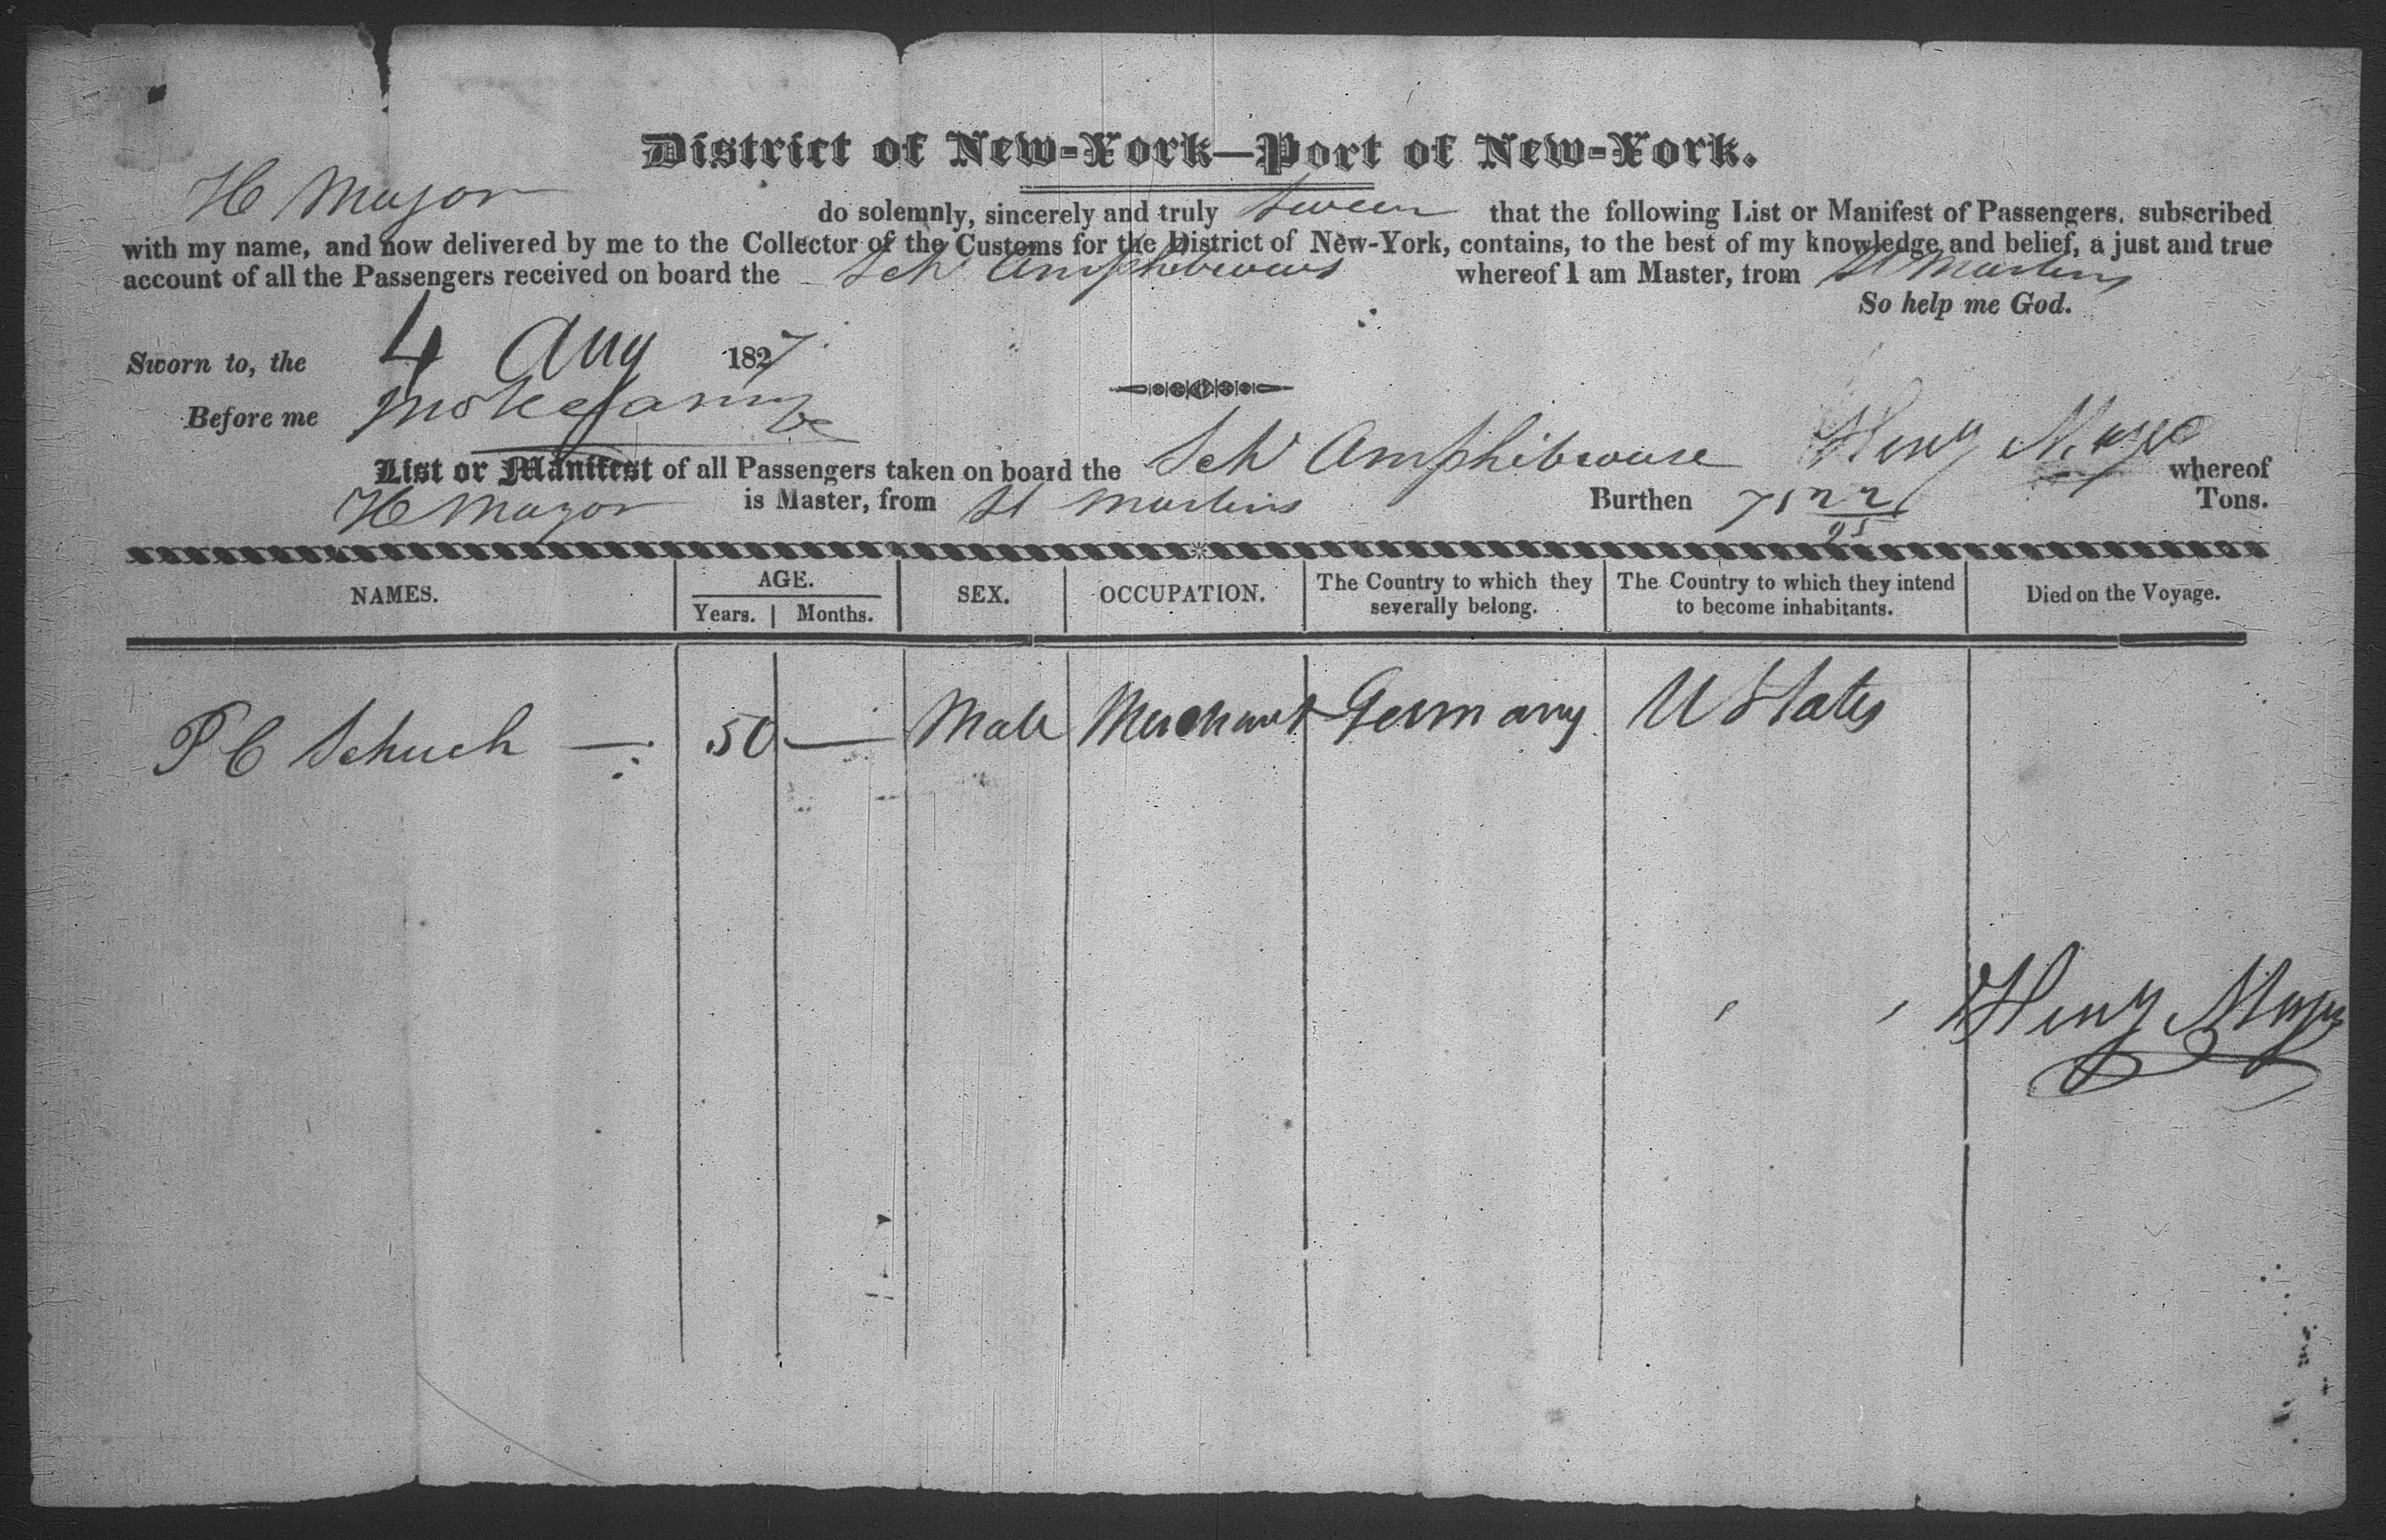 District of New-York—Port of New-York.
H Mayor do solemnly, sincerely and truly swear that the following List or Manifest of Passengers, subscribed
with my name, and now delivered by me to the Collector of the Customs for the District of New-York, contains, to the best of my knowledge and belief, a just and true
account of all the Passengers received on board the Schr whereof I am Master, from St Martins
So help me God.
Sworn to, the 4 Aug 1827
Before me
List or Manifest of all Passengers taken on board the Schr Henry whereof
H Mayor is Master, from St Martins Burthen Tons.
NAMES. AGE. SEX. OCCUPATION. The Country to which they severally belong. The Country to which they intend to become inhabitants. Died on the Voyage.
Years. Months.
P C Schuch — 50 — Male Merchant Germany U States
Henry